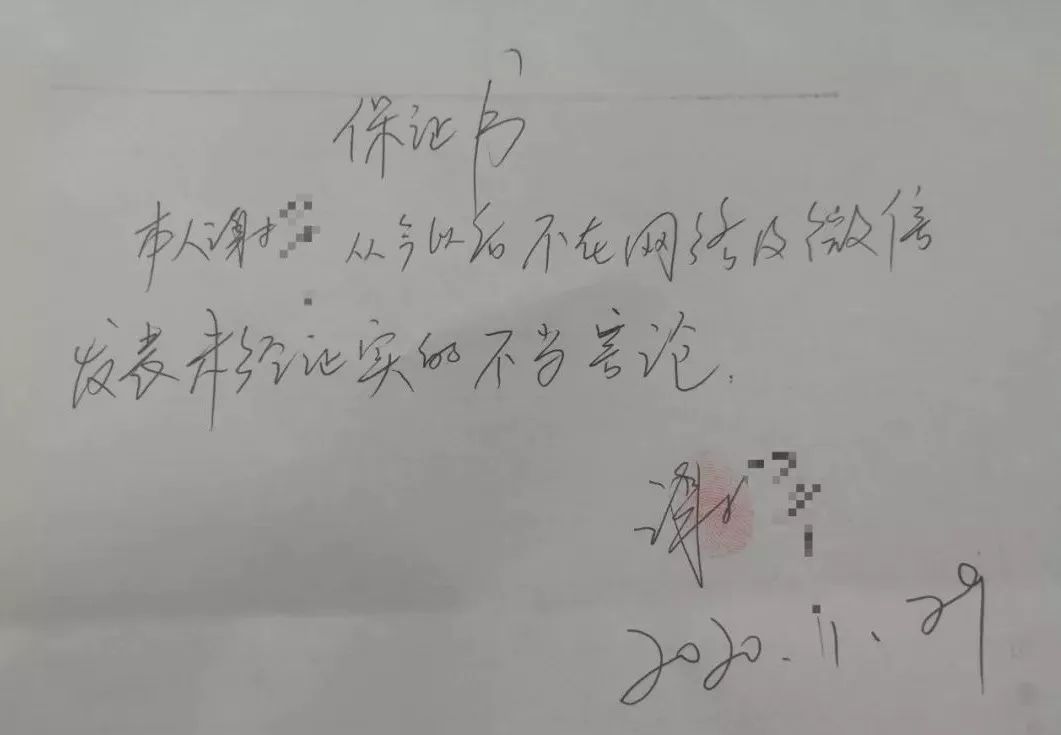 保证书
本人谢 从今以后不在网络及微信
发表未经证实的不当言论.
谢
2020.11.29